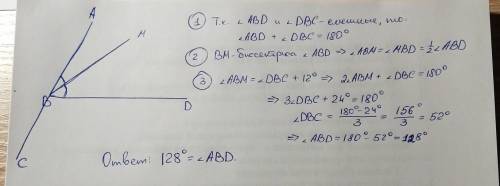 A
M
B
D
C
① Т.к. ∠ABD и ∠DBC - смежные, то
∠ABD + ∠DBC = 180°
② BM-биссектриса ∠ABD ⇒ ∠ABM = ∠MBD = 1/2 ∠ABD
③ ∠ABM = ∠DBC + 12° ⇒ 2∠ABM + ∠DBC = 180°
⇒ 3∠DBC + 24° = 180°
∠DBC = (180° - 24°)/3 = 156°/3 = 52°
⇒ ∠ABD = 180° - 52° = 128°
Ответ: 128° = ∠ABD.